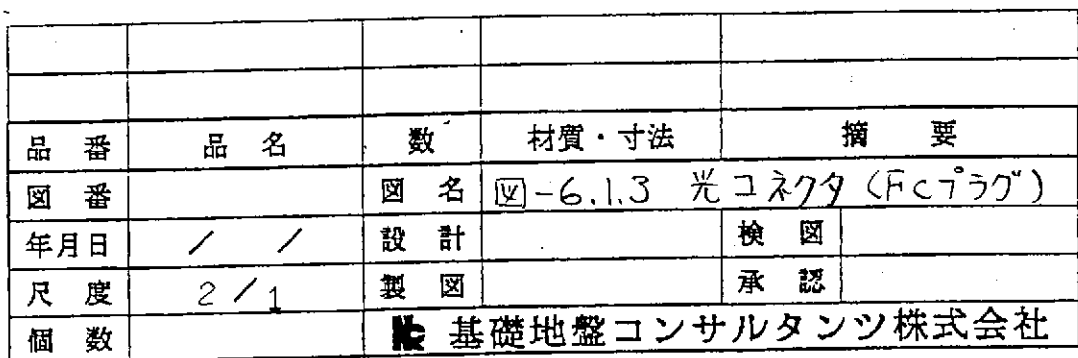 品 番 品 名 数 材質・寸法 摘 要
図 番 図 名 図-6.1.3 光コネクタ(FCプラグ)
年月日 / / 設 計 検 図
尺 度 2/1 製 図 承 認
個 数 基礎地盤コンサルタンツ株式会社